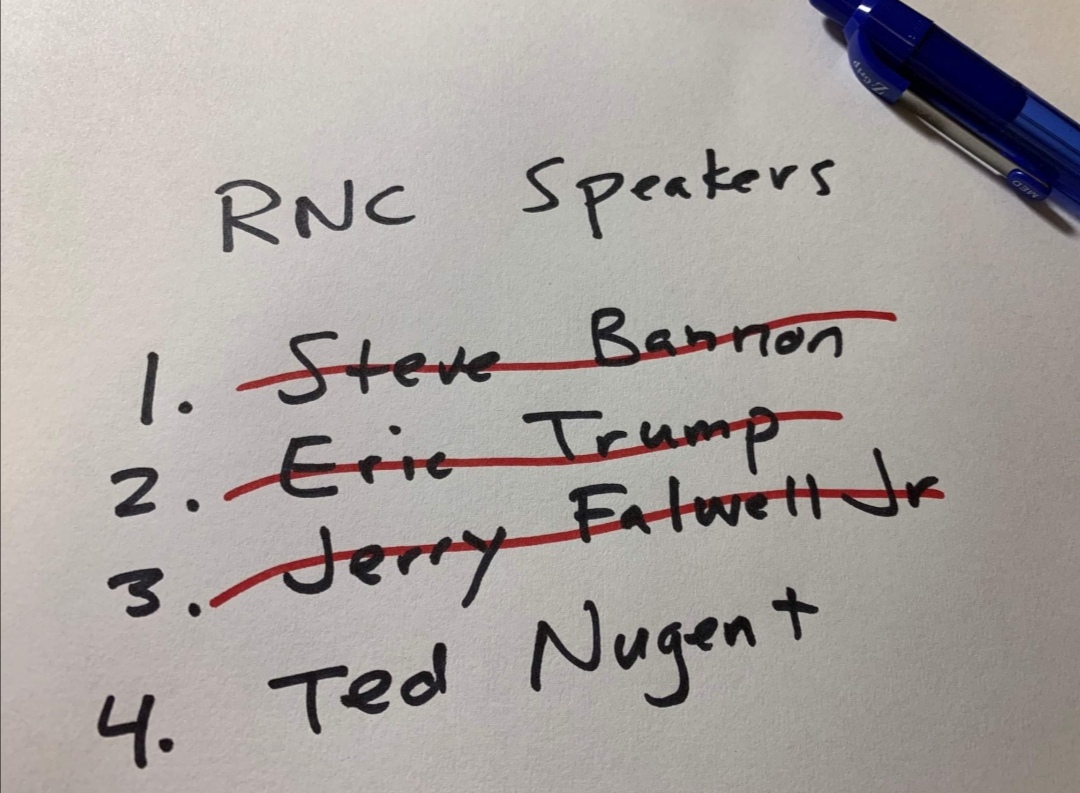 RNC Speakers
1. Steve Bannon
2. Eric Trump
3. Jerry Falwell Jr
4. Ted Nugent
Z-Grip
MED